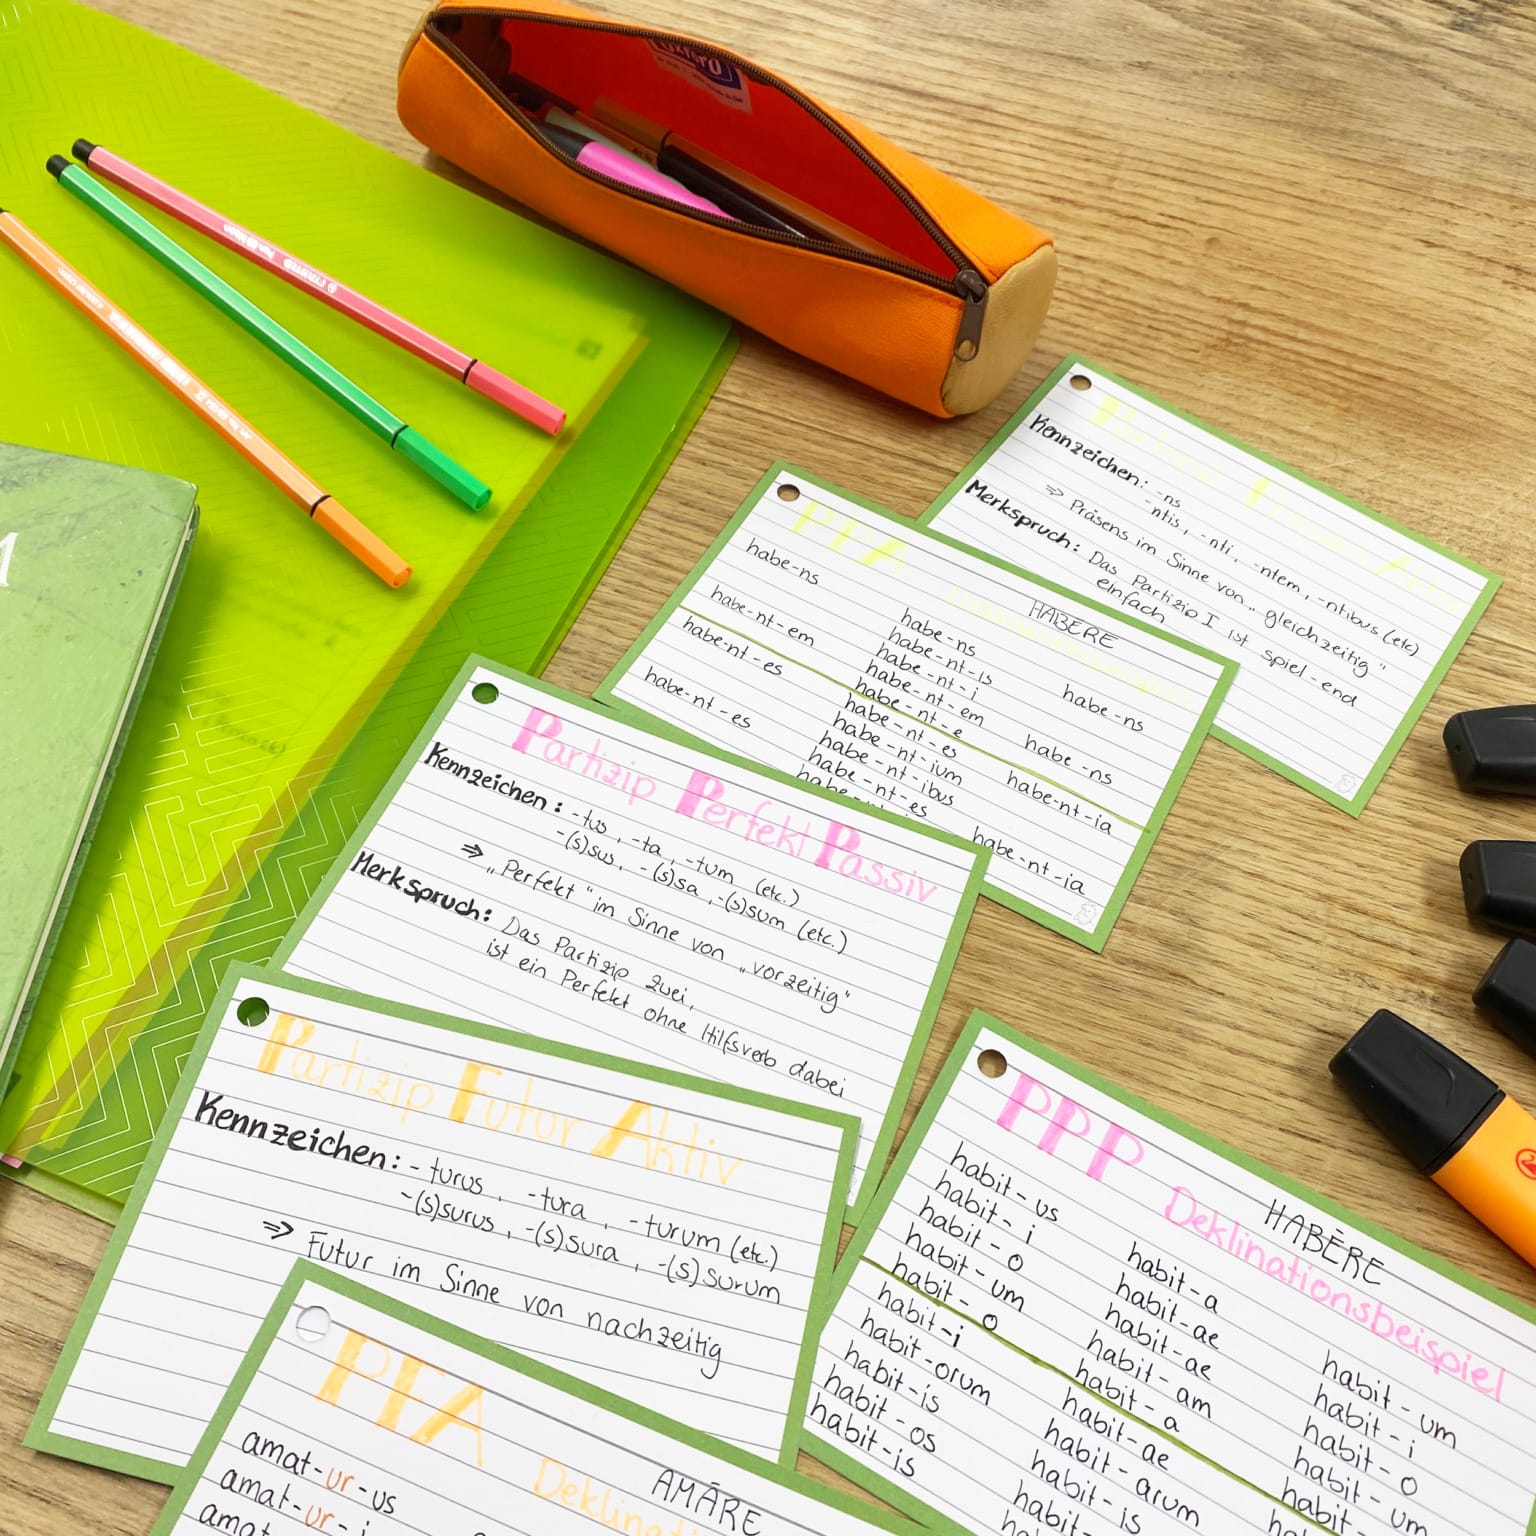 Kennzeichen: -ns
-ntis, -nti, -ntem, -ntibus (etc)
⇒ Präsens im Sinne von „gleichzeitig"
Merkspruch: Das Partizip I ist spiel-end
einfach
PPA
HABĒRE
habe-ns
habe-nt-em
habe-nt-es
habe-nt-es
habe-ns
habe-nt-is
habe-nt-i
habe-nt-em
habe-nt-e
habe-nt-es
habe-nt-ium
habe-nt-ibus
habe-nt-es
habe-ns
habe-ns
habe-nt-ia
habe-nt-ia
Partizip Perfekt Passiv
Kennzeichen: -tus, -ta, -tum (etc.)
-(s)sus, -(s)sa, -(s)sum (etc.)
⇒ „Perfekt" im Sinne von „vorzeitig"
Merkspruch: Das Partizip zwei,
ist ein Perfekt ohne Hilfsverb dabei
Partizip Futur Aktiv
Kennzeichen: -turus, -tura, -turum (etc.)
-(s)surus, -(s)sura, -(s)surum
⇒ Futur im Sinne von nachzeitig
PPP
HABĒRE
Deklinationsbeispiel
habit-us
habit-i
habit-o
habit-um
habit-o
habit-i
habit-orum
habit-is
habit-os
habit-is
habit-a
habit-ae
habit-ae
habit-am
habit-a
habit-ae
habit-arum
habit-is
habit-
habit-um
habit-i
habit-o
habit-um
habit-
PFA
AMĀRE
amat-ur-us
amat-ur-i